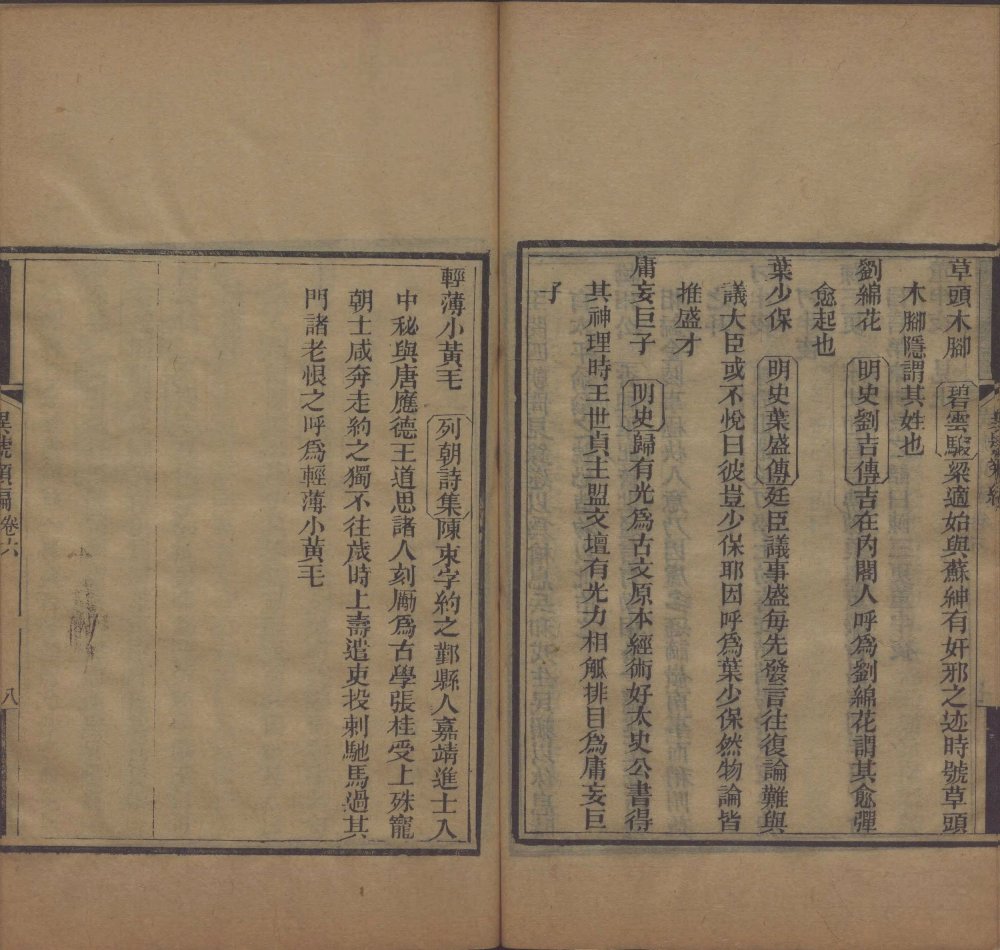 草頭木腳　碧雲騢梁適始與蘇紳有奸邪之迹時號草頭
木腳隱謂其姓也
劉綿花　明史劉吉傳吉在內閣人呼爲劉綿花謂其愈彈
愈起也
葉少保　明史葉盛傳廷臣議事盛每先發言往復論難與
議大臣或不悅曰彼豈少保耶因呼爲葉少保然物論皆
推盛才
庸妄巨子　明史歸有光爲古文原本經術好太史公書得
其神理時王世貞主盟文壇有光力相觝排目爲庸妄巨
子
輕薄小黃毛　列朝詩集陳束字約之鄞縣人嘉靖進士入
中秘與唐應德王道思諸人刻厲爲古學張桂受上殊寵
朝士咸奔走約之獨不往歲時上壽遣吏投刺馳馬過其
門諸老恨之呼爲輕薄小黃毛
異號類編 卷六
八